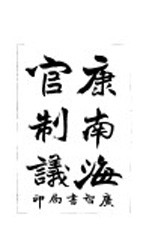 康南海
官制議
廣智書局印